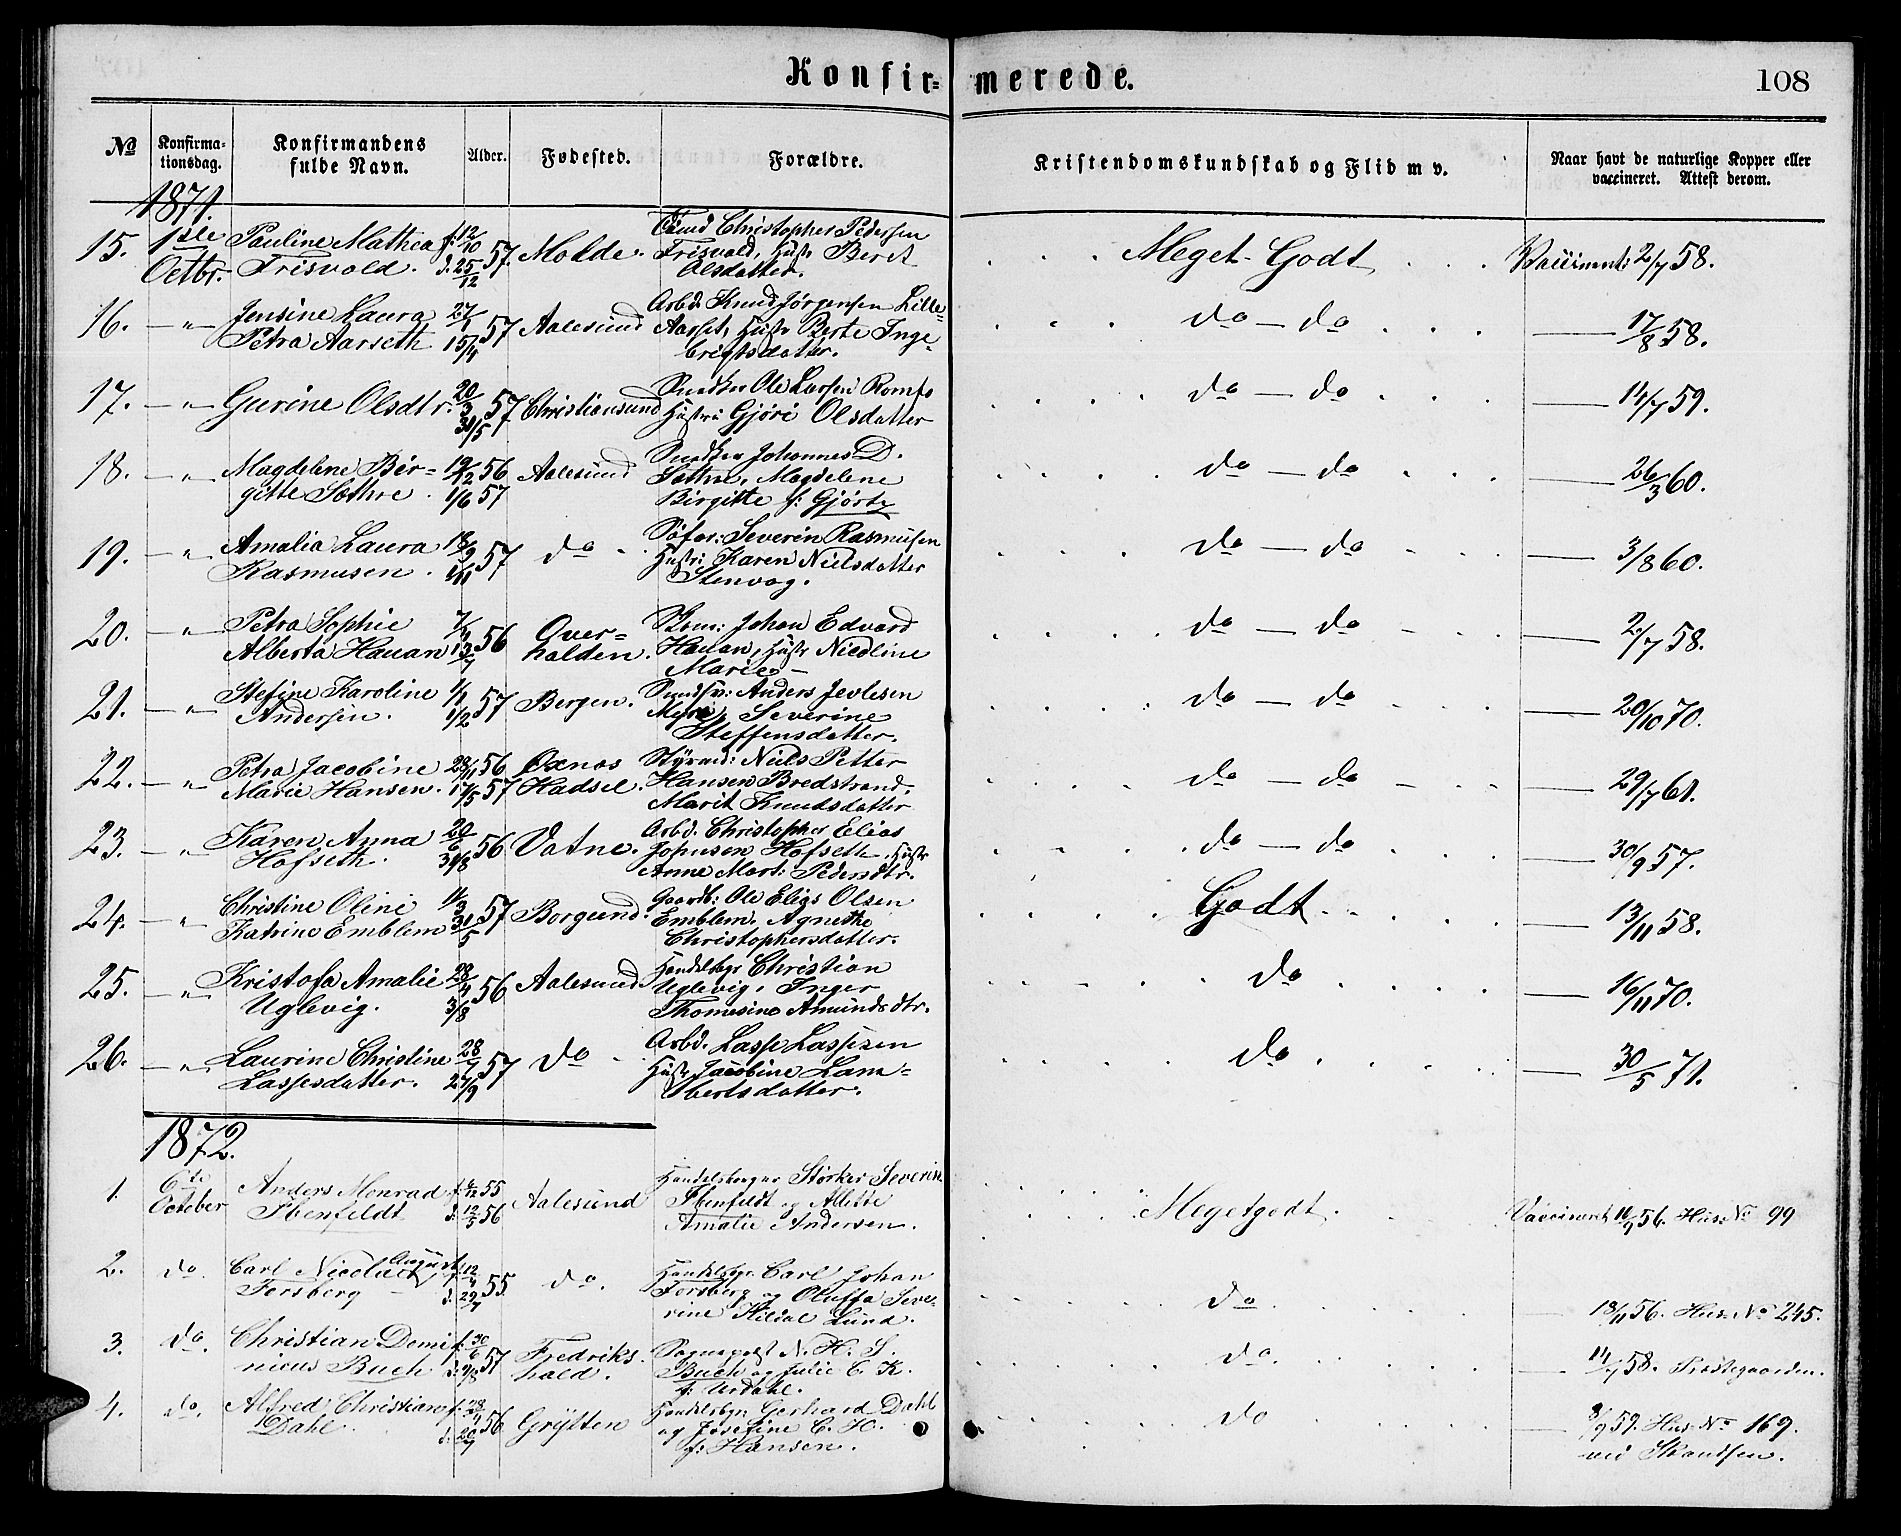 Konfir- merede. 108
No Konfirma-tionsdag. Konfirmandens fulde Navn. Alder. Fødested. Forældre. Kristendomskundskab og Flid m v. Naar havt de naturlige Kopper eller vaccineret. Attest derom.
1871.
15. 1ste Pauline Mathea f. 12/10 57. Molde. Christopher Pedersen Meget Godt 2/7 58.
Octbr. Frisvold. d. 25/12 Frisvold, Hustr Berit
Olsdatter.
16. — " — Jensine Laura 27/1 57 Aalesund Arbd. Knud Jørgensen Lille- do — do — 17/8 58.
Petra Aarseth 15/4 Aarset, Hustr Berte Inge-
brigtsdatter.
17. — " — Gurine Olsdtr. 20/3 57 Christiansund Ole Larsen Romfo do — do — 14/7 59.
31/5 Hustru Gjøri Olsdatter
18. — " — Magdelene Bir- 19/12 56 Aalesund Johannes D. do — do — 26/3 60.
gitte Sæthre. 1/6 57 Sæthre, Magdelene
Birgitte f: Gjørtz
19. — " — Amalia Laura 18/9 57 do Søfar: Severin Rasmusen do — do — 3/8 60.
Rasmusen. 1/11 Hustr: Karen Nielsdatter
Stenvag.
20. — " — Petra Sophie 7/4 56 Over- Johan Edvard do — do — 2/7 58.
Alberta Hauan 13/7 halden. Hauan, Hustr Nicoline
Marie
21. — " — Stefine Karoline 1/1 57 Bergen. Anders Jevlesen do — do — 20/10 70.
Andersen. 1/2 Severine
Steffensdatter.
22. — " Petra Jacobine 28/11 56 Oxnes Styrmd: Niels Petter do — do — 29/7 61.
Marie Hansen. 17/5 57 Hadsel. Hansen Bredstrand.
Marit Knudsdatter
23. — " Karen Anna 20/6 56 Vatne. Arbd. Christopher Elias do — do — 30/9 57.
Hofseth. 31/8 Johnsen Hofseth, Hustr
Anne Mart: Pedersdtr.
24. — " Christine Oline 11/3 57 Borgund. Gaardb: Ole Elias Olsen Godt — 13/11 58.
Katrine Emblem 31/5 Emblem, Agnethe
Christophersdatter.
25. — " — Kristofa Amalie 28/4 56 Aalesund Handelsbgr Christian do — 16/11 70.
Uglevig. 3/8 Uglevig, Inger
Thomesine Amundsdtr.
26. — " — Laurine Christine 28/7 57 do Arbd. Lasse Lassesen do — 30/5 71.
Lassesdatter. 27/9 Hustr. Jacobine Lam-
bertsdatter.
1872.
1. 6te Anders Monrad f. 6/12 55 Aalesund Handelsborger Størker Severin Megetgodt. Vaccineret 16/9 56. Hus: No 99
October Ibenfeldt d. 12/5 56 Ibenfeldt og Allette
Amalie Andersen.
2. do. Carl Nicolai August f. 12/4 55. do. Handelsbgr. Carl Johan do 18/11 56. Hus. No 245.
Forsberg d. 29/7 Forsberg og Oluffa Seve-
rine Hildal Lund.
3. do. Christian Domi- f. 30/6 57 Fredriks- Sognepræst N. H. S. do. — 14/7 58. Præstegaarden.
nicus Buch d. 9/8 hald. Buch og Julie C. K.
f: Urdahl.
4. do. Alfred Christian f. 28/4 56 Grytten Handelsbgr. Gerhard Dahl do — 8/9 59. Hus. No 169.
Dahl. d: 20/7 og Josefine C. H. ved Skandsen.
f: Hansen.